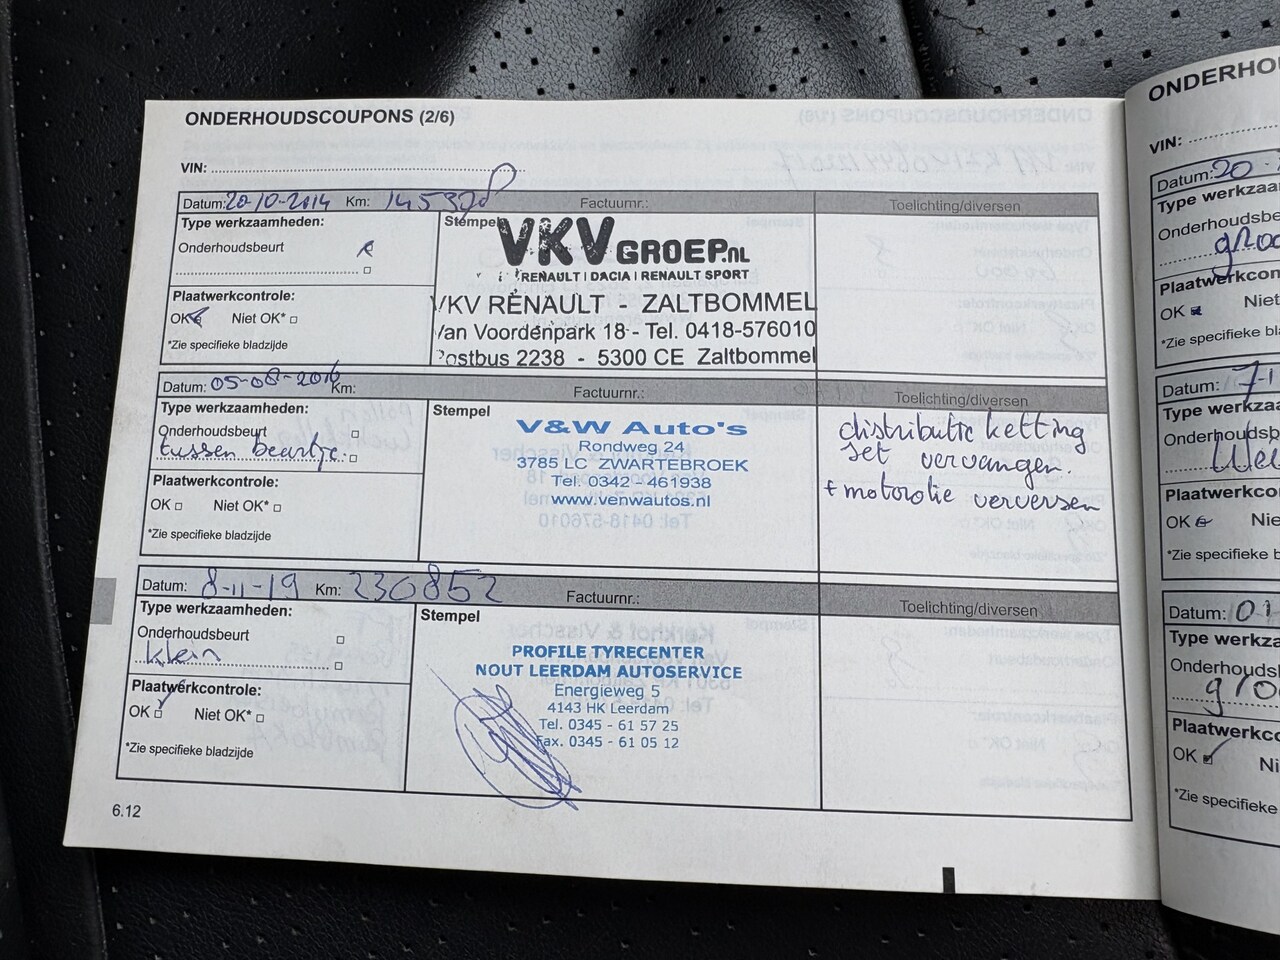 ONDERHOUDSCOUPONS (2/6)
VIN:
Datum: 20-10-2014 Km: 145378 Factuurnr.: Toelichting/diversen
Type werkzaamheden:
Onderhoudsbeurt
Stempel
VKV GROEP.NL
RENAULT | DACIA | RENAULT SPORT
VKV RENAULT - ZALTBOMMEL
Van Voordenpark 18 - Tel. 0418-576010
Postbus 2238 - 5300 CE Zaltbommel
Plaatwerkcontrole:
OK Niet OK*
*Zie specifieke bladzijde
Datum: 05-08-2016 Km: Factuurnr.: Toelichting/diversen
Type werkzaamheden:
Onderhoudsbeurt
tussen beurtje
Stempel
V&W Auto's
Rondweg 24
3785 LC ZWARTEBROEK
Tel. 0342 - 461938
www.venwautos.nl
distributie ketting
set vervangen.
+ motorolie verversen
Plaatwerkcontrole:
OK Niet OK*
*Zie specifieke bladzijde
Datum: 8-11-19 Km: 230852 Factuurnr.: Toelichting/diversen
Type werkzaamheden:
Onderhoudsbeurt
klein
Stempel
PROFILE TYRECENTER
NOUT LEERDAM AUTOSERVICE
Energieweg 5
4143 HK Leerdam
Tel. 0345 - 61 57 25
Fax. 0345 - 61 05 12
Plaatwerkcontrole:
OK Niet OK*
*Zie specifieke bladzijde
6.12
ONDERHO
VIN:
Datum: 20-
Type werkzaa
Onderhoudsbe
groo
Plaatwerkcon
OK Niet
*Zie specifieke
Datum: 7-1
Type werkza
Onderhoudsb
Plaatwerkco
OK Nie
*Zie specifieke
Datum: 01
Type werkza
Onderhoudsl
gro
Plaatwerkc
OK Ni
*Zie specifieke